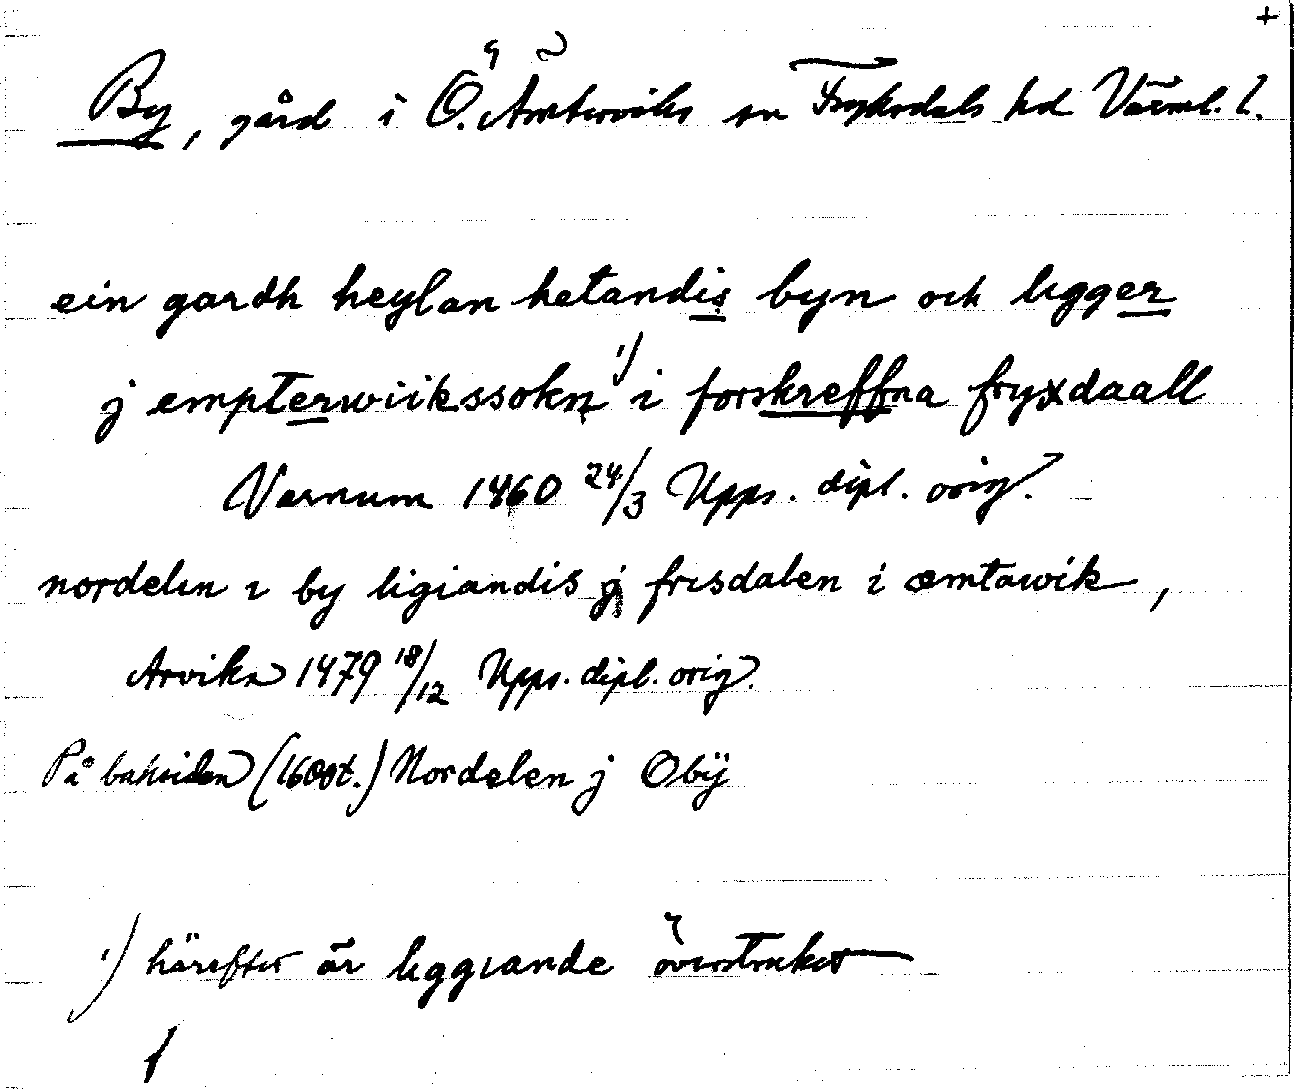 +
By, gård i Ö. Ämterviks sn Fryksdals hd Värml. l.
ein gardh heylan hetandis byn och ligger
j empterwiikssokn 1) i forskreffna fryxdaall
Varnum 1460 24/3 Upps. dipl. orig.
nordelin i by ligiandis j frisdalen i æmtawik,
Arvika 1479 18/12 Upps. dipl. orig.
På baksidan (1600t.) Nordelen j Obÿ
1) härefter är liggiande överstruket